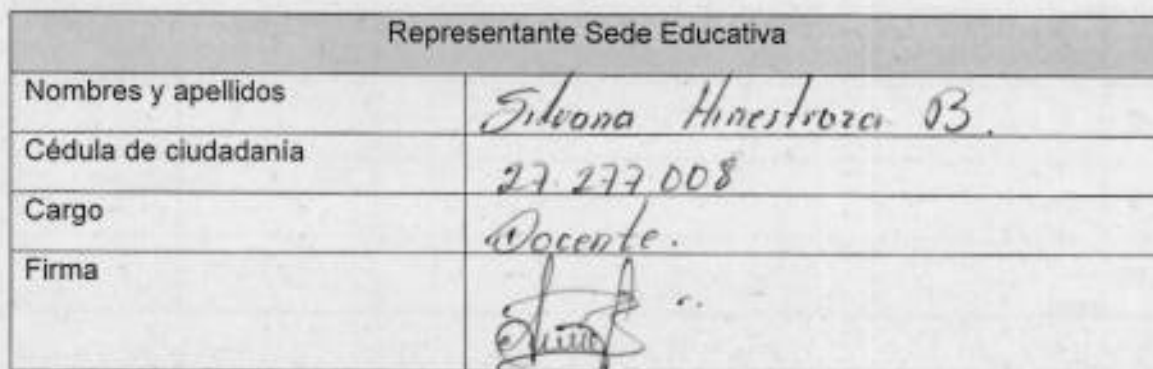 Representante Sede Educativa
Nombres y apellidos Silvana Hinestroza B.
Cédula de ciudadanía 27.277.008
Cargo Docente.
Firma